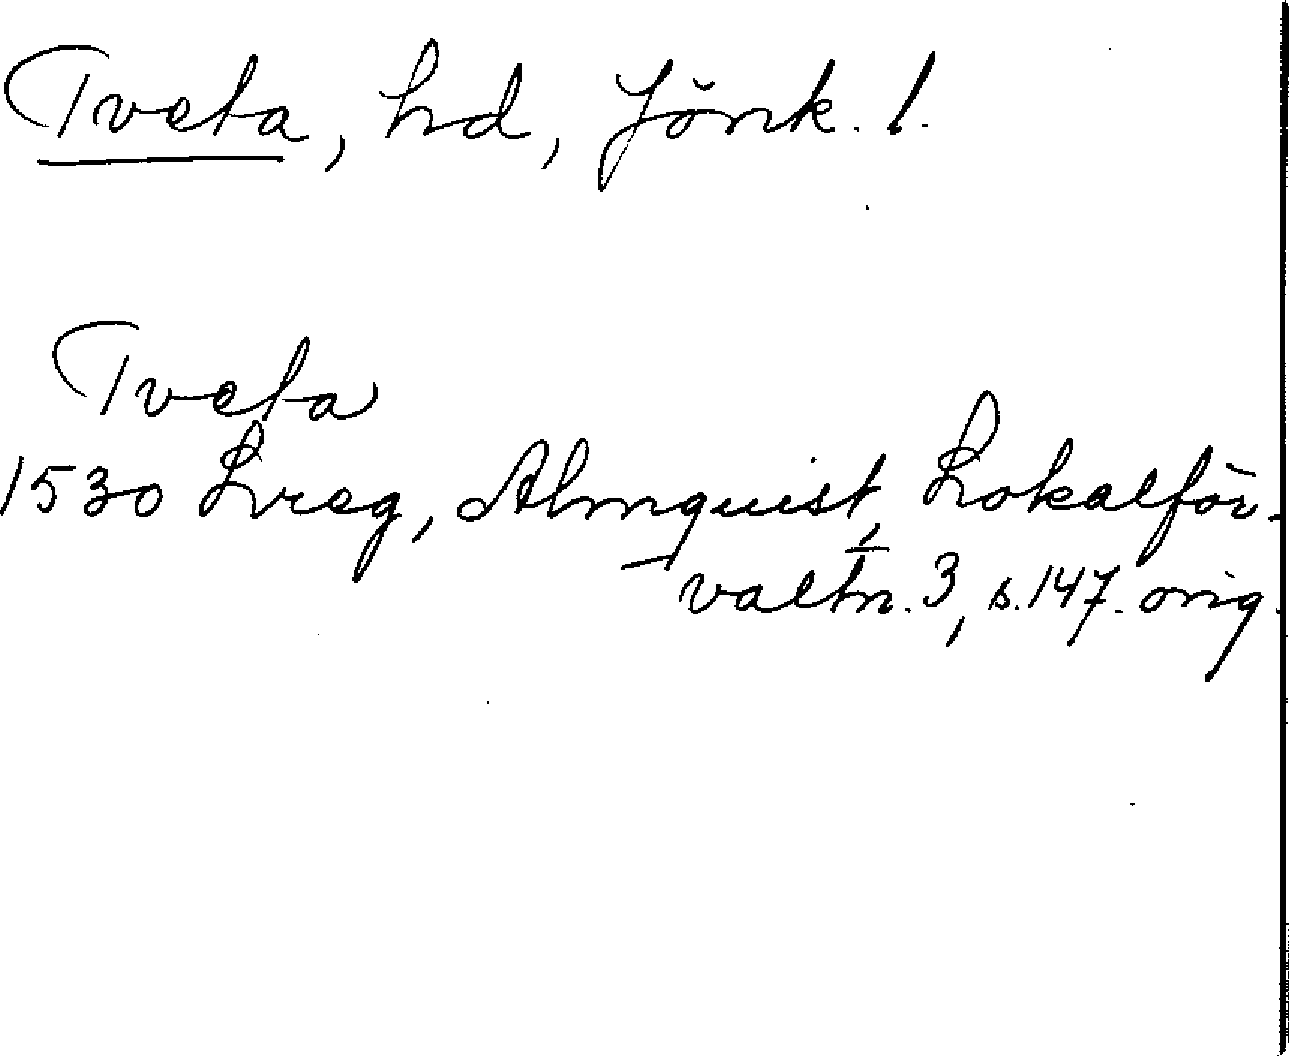 Tveta, hd, Jönk. l.
Tveta
1530 Lvreg, Almquist, Lokalför-
valtn. 3, s. 147. orig.